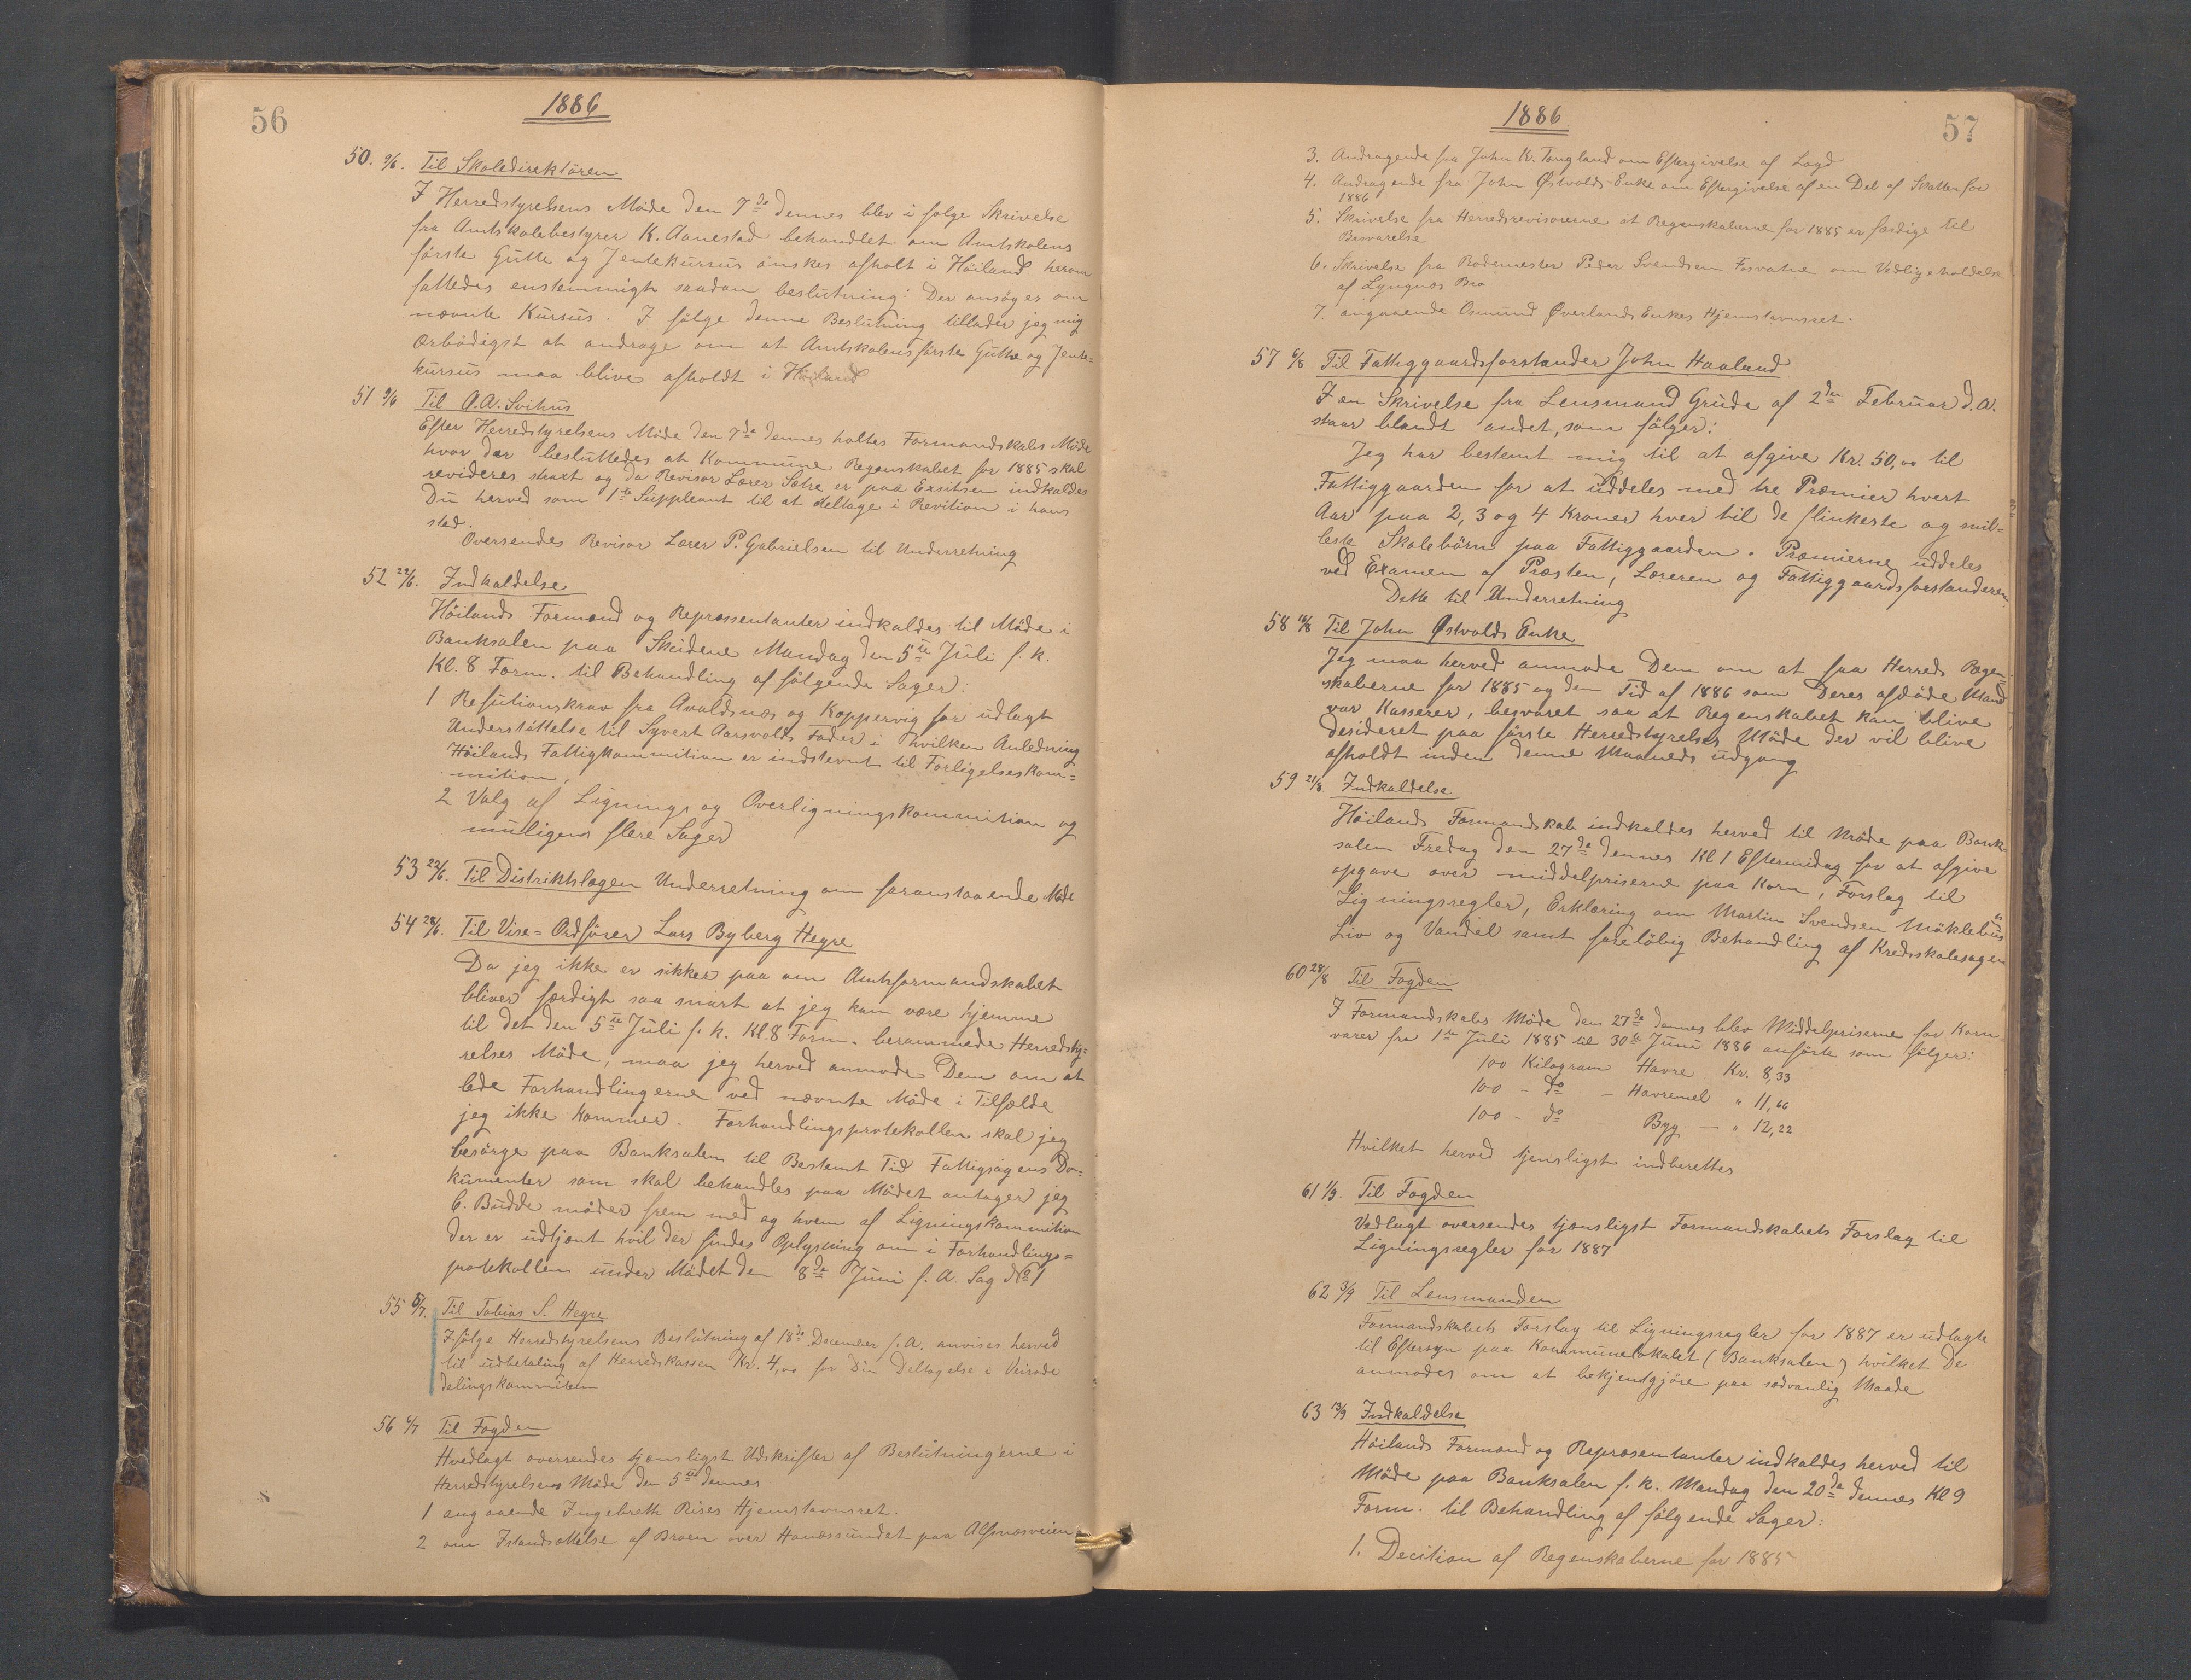 56
1886
50. 9/6. Til Skoledirektören
I Herredstyrelsens Möde den 7de dennes blev i følge Skrivelse
fra Amtskolebestyrer K. Aanestad behandlet om Amtskolens
förste Gutte og Jentekursus önskes afholt i Höiland herom
fattedes enstemmigt saadan beslutning: Der ansöges om
nævnte Kursus. I fölge denne Beslutning tillader jeg mig
ærbödigst at andrage om at Amtskolens förste Gutte og Jente=
kursus maa blive afholdt i Höiland
51 9/6 Til O.A. Svihus
Efter Herredstyrelsens Möde den 7de dennes holtes Formandskabs Möde
hvor der besluttedes at Kommune Regenskabet for 1885 skal
revideres straxt og da Revisor Lærer Sætre er paa Exsitsen indkaldes
Du herved som 1te Suppleant til at deltage i Revition i hans
sted.
Oversendes Revisor Lærer P. Gabrielsen til Underretning
52 22/6. Indkaldelse
Höilands Formænd og Repræsentanter indkaldes til Möde i
Banksalen paa Skeidene Mandag den 5te Juli f. k.
Kl. 8 Form. til Behandling af fölgende Sager:
1 Refutionskrav fra Avaldsnæs og Koppervig for udlagt
Understöttelse til Syvert Aarsvolds Fader i hvilken Anledning
Höilands Fattigkommition er indstevnt til Forligelseskom=
mition.
2 Valg af Lignings og Overligningskommition og
muligens flere Sager
53 22/6. Til Distriktslægen Underretning om foranstaaende Möde
54 28/6. Til Vise=Ordförer Lars Byberg Hegre
Da jeg ikke er sikker paa om Amtsformandskabet
bliver færdigt saa snart at jeg kan være hjemme
til det den 5te Juli f. k. Kl. 8 Form. berammede Herredsty=
relses Möde, maa jeg herved anmode Dem om at
lede Forhandlingerne ved nævnte Möde i Tilfælde
jeg ikke kommer. Forhandlingsprotekollen skal jeg
besörge paa Banksalen til Bestemt Tid Fattigsagens Do=
kumenter som skal behandles paa Mödet antager jeg
C. Budde möder frem med og hvem af Ligningskommition
der er udtjent hvil der findes Oplysning om i Forhandlings=
protekollen under Mödet den 8de Juni f. A. Sag No 1
55 5/7. Til Tobias S. Hegre
Ifölge Herredstyrelsens Beslutning af 18de December f. A. anvises herved
til udbetaling af Herredskassen Kr. 4,00 for Din Deltagelse i Veirode
delingskommition
56 6/7 Til Fogden
Hvedlagt oversendes tjensligst Udskrifter af Beslutningerne i
Herredstyrelsens Möde den 5te dennes
1 angaaende Ingebreth Rises Hjemstavnsret.
2 om Istandsættelse af Broen over Hanæssundet paa Alsnæsveien
1886
57
3. Andragende fra John K. Tengland om Eftergivelse af Lægd
4. Andragende fra John Østvolds Enke om Eftergivelse af en Del af Skatten for
1886
5. Skrivelse fra Herredsrevisorerne at Regenskaberne for 1885 er færdige til
Besvarelse
6. Skrivelse fra Rodemester Peder Svendsen Fosvatne om Vedligeholdelse
af Lyngnæs Bro
7. angaaende Osmund Øverlands Enkes Hjemstavnsret.
57 6/8 Til Fattiggaardsforstander John Haaland
I en Skrivelse fra Lensmand Grude af 2den Februar d. A.
staar blandt andet, som fölger:
Jeg har bestemt mig til at afgive Kr. 50,00 til
Fattiggaarden for at uddeles med tre Præmier hvert
Aar paa 2, 3 og 4 Kroner hver til de flinkeste og snil=
leste Skolebörn paa Fattiggaarden. Præmierne uddeles
ved Examen af Præsten, Læreren og Fattiggaardsforstanderen
Dette til Underretning
58 18/8 Til John Østvolds Enke
Jeg maa herved anmode Dem om at faa Herreds Regen=
skaberne for 1885 og den Tid af 1886 som Deres afdöde Mand
var Kasserer, besvaret saa at Regenskabet kan blive
desideret paa förste Herredstyrelses Möde der vil blive
afholdt inden denne Maaneds udgang
59 21/8 Indkaldelse
Höilands Formandskab indkaldes herved til Möde paa Bank=
salen Fredag den 27de dennes Kl 1 Eftermidag for at afgive
opgave over middelpriserne paa Korn, Forslag til
Ligningsregler, Erklæring om Martin Svendsen Möklebus
Liv og Vandel samt forelöbig Behandling af Kredsskolesagen
60 28/8 Til Fogden
I Formandskabs Möde den 27de dennes blev Middelpriserne for Korn=
varer fra 1te Juli 1885 til 30te Juni 1886 anförte som fölger:
100 Kilogram Havre Kr. 8,33
100 - do - Havremel " 11,66
100 - do - Byg - " 12,22
Hvilket herved tjensligst indberettes
61 1/9. Til Fogden
Vedlagt oversendes tjensligst Formandskabets Forslag til
Ligningsregler for 1887
62 3/9 Til Lensmanden
Formandskabets Forslag til Ligningsregler for 1887 er udlagte
til Eftersyn paa Kommunelokalet (Banksalen) hvilket De
anmodes om at bekjendtgjöre paa sædvanlig Maade
63 13/9 Indkaldelse
Höilands Formænd og Repræsentanter indkaldes herved til
Möde paa Banksalen f. k. Mandag den 20de dennes Kl 9
Form. til Behandling af fölgende Sager:
1. Decition af Regenskaberne for 1885